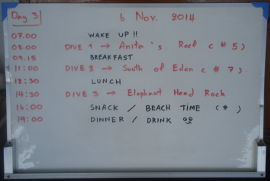 Day 3 6 Nov. 2014
07.00 WAKE UP!!
08.00 DIVE 1 → Anita's Reef (#5)
09.15 BREAKFAST
11:00 DIVE 2 → South of Eden (#7)
12:30 LUNCH
14:30 DIVE 3 → Elephant Head Rock
16:00 SNACK / BEACH TIME (*)
19:00 DINNER / DRINK